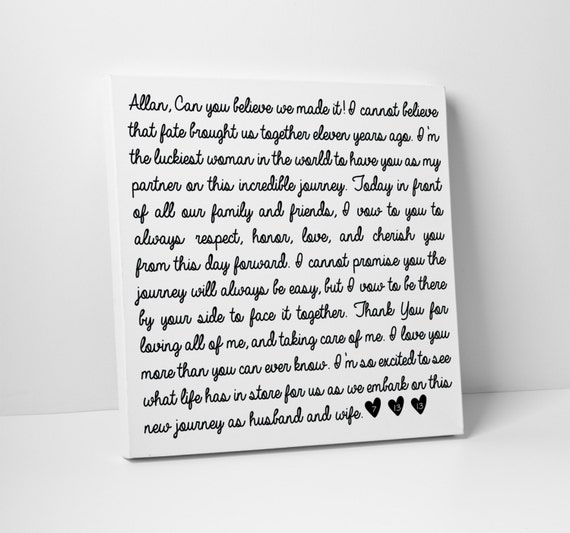 Allan, Can you believe we made it! I cannot believe
that fate brought us together eleven years ago. I'm
the luckiest woman in the world to have you as my
partner on this incredible journey. Today in front
of all our family and friends, I vow to you to
always respect, honor, love, and cherish you
from this day forward. I cannot promise you the
journey will always be easy, but I vow to be there
by your side to face it together. Thank You for
loving all of me, and taking care of me. I love you
more than you can ever know. I'm so excited to see
what life has in store for us as we embark on this
new journey as husband and wife. 7 13 13